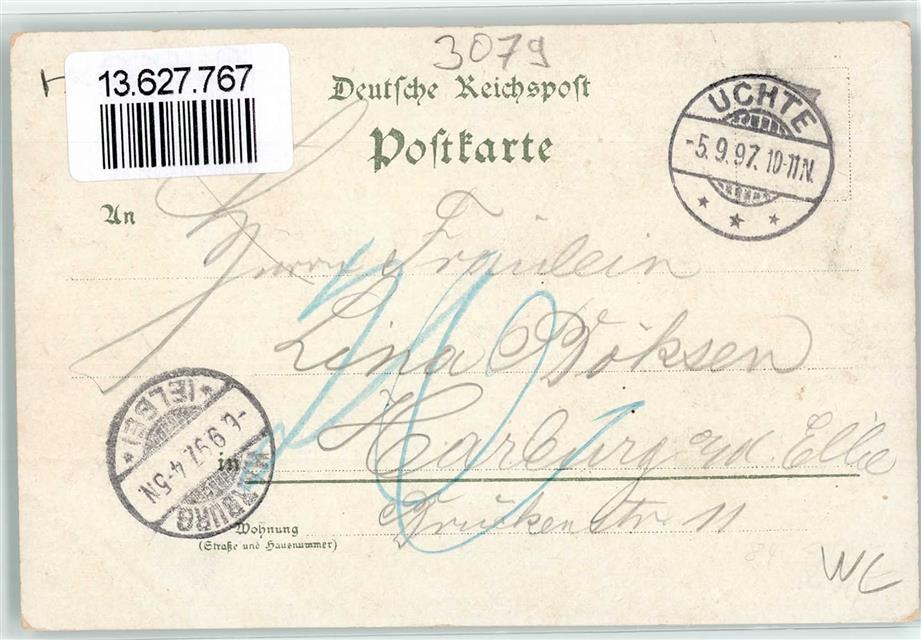 3079
13.627.767
Deutsche Reichspost
Postkarte
UCHTE
-5.9.97. 10-11N.
An
Fräulein
Lina Döksen
in Harburg a/d. Elbe
HARBURG
-6.9.97. 4-5N.
* (ELBE) *
Wohnung
(Straße und Hausnummer)
Brückenstr 11
84
WC